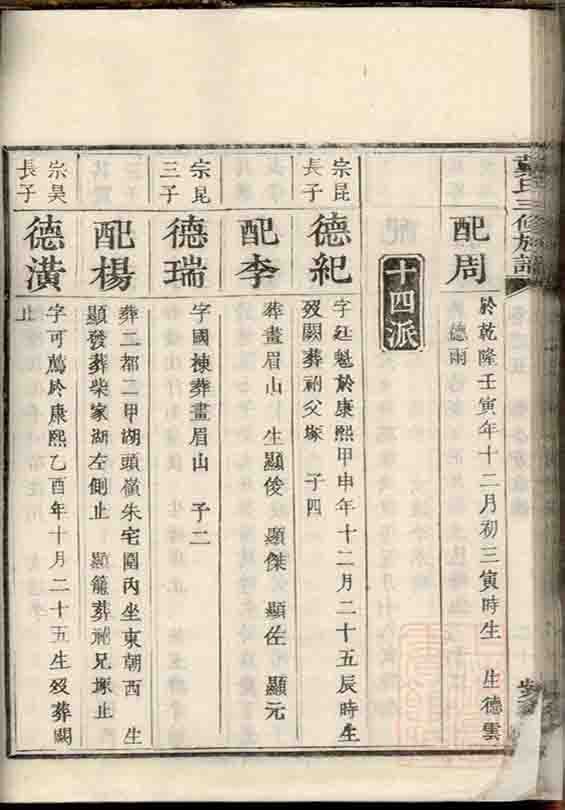 氏三修族譜
配周
於乾隆壬寅年十二月初三寅時生 生德雲
德雨
十四派
宗昆
長子
德紀
字廷魁於康熙甲申年十二月二十五辰時生
歿闕葬祔父塚 子四
配李
葬畫眉山 生顯俊 顯傑 顯佐 顯元
宗昆
三子
德瑞
字國棟葬畫眉山 子二
配楊
葬二都二甲湖頭嶺朱宅圍內坐東朝西 生
顯發葬柴家湖左側止 顯籠葬祔兄塚止
宗昊
長子
德潢
字可薦於康熙乙酉年十月二十五生歿葬闕
止